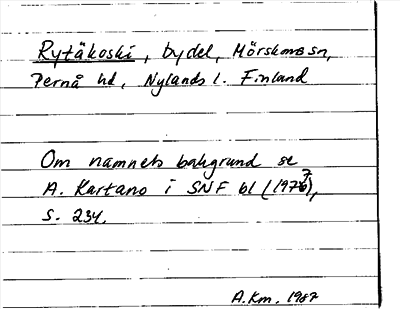 Rytäkoski, bydel, Mörskoms sn,
Pernå hd, Nylands l. Finland
Om namnets bakgrund se
A. Kartano i SNF bl (1977),
s. 234.
A.Km. 1987